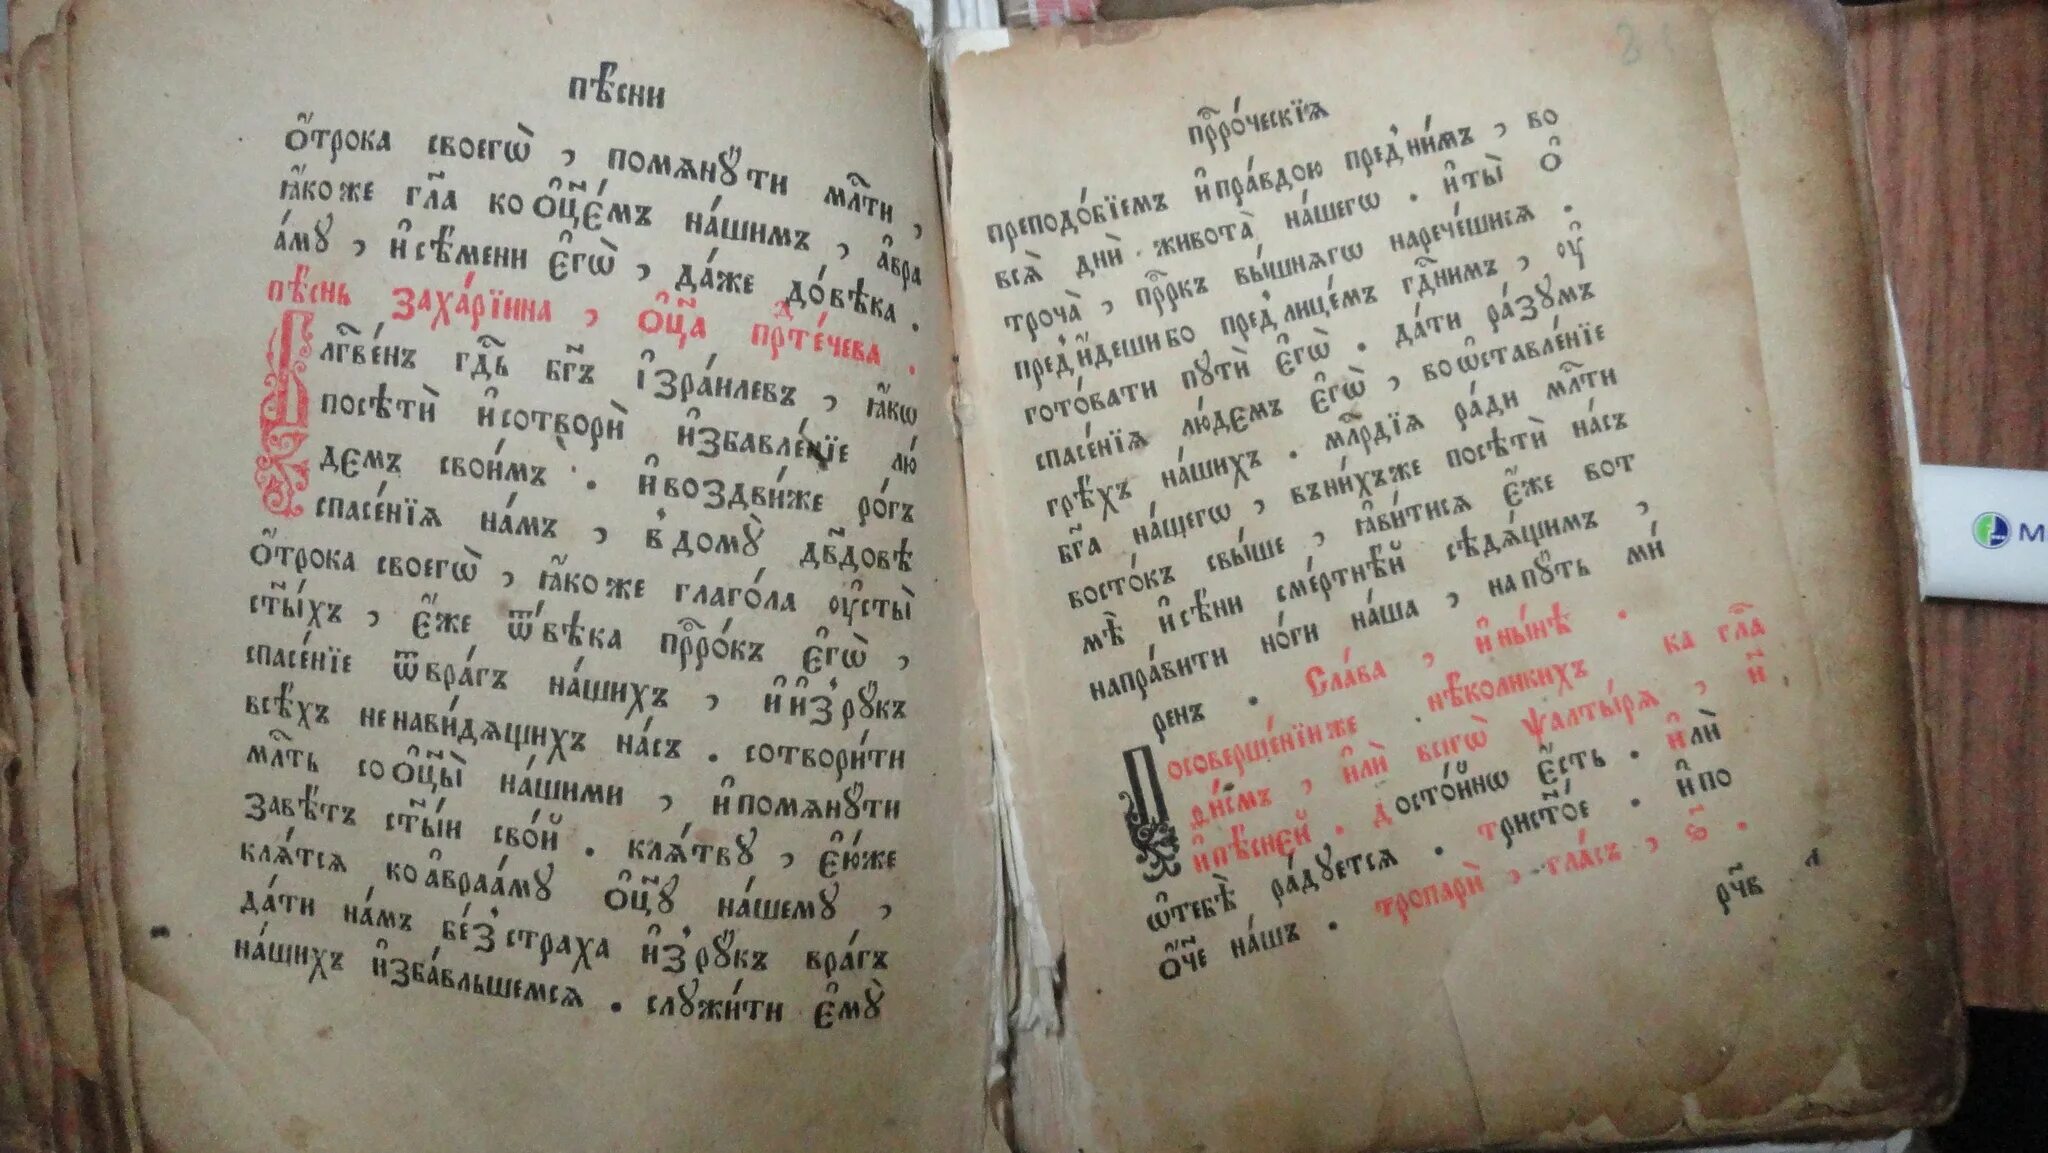 пѣ́сни
ѻ҆́трока своегѡ̀ , помѧнꙋ́ти млⷭ҇ти ,
ꙗ҆́коже гл҃а ко ѻ҆ц҃є́мъ на́шимъ , а҆вра
а́мꙋ , и҆сѣ́мени є҆гѡ̀ , да́же до́вѣка .
пѣ́снь заха́рїина , ѻ҆ц҃а прⷣте́чева .
Блгⷭ҇ве́нъ гдⷭ҇ь бг҃ъ і҆зра́илевъ , ꙗ҆́кѡ
посѣтѝ и҆сотворѝ и҆збавле́нїе лю́
дємъ свои́мъ . и҆воздви́же ро́гъ
спасе́нїѧ на́мъ , в̾домꙋ̀ дв҃довѣ
ѻ҆́трока своегѡ̀ , ꙗ҆́коже глаго́ла ᲂу҆сты̀
ст҃ы́хъ , є҆́же ѿвѣ́ка прⷪ҇ро́къ є҆гѡ̀ ,
спасе́нїе ѿвра́гъ на́шихъ , и҆и҆з̾рꙋ́къ
всѣ́хъ ненави́дѧщихъ на́съ . сотвори́ти
млⷭ҇ть со ѻ҆ц҃ы̀ на́шими , и҆помѧнꙋ́ти
завѣ́тъ ст҃ы́и сво́й . клѧ́твꙋ , є҆ю́же
клѧ́тсѧ ко а҆враа́мꙋ ѻ҆ц҃ꙋ̀ на́шемꙋ ,
да́ти на́мъ без̾стра́ха и҆з̾рꙋ́къ вра́гъ
на́шихъ и҆зба́вльшемсѧ . слꙋжи́ти є҆мꙋ̀
прⷪ҇ро́ческїѧ
преподо́бїемъ и҆пра́вдою пред̾ни́мъ , во
всѧ̀ днѝ живота̀ на́шегѡ . и҆ты̀ ѻ҆
троча̀ , прⷪ҇ркъ вы́шнѧгѡ нарече́шисѧ .
пред̾и́деши бо пред̾лице́мъ гдⷭ҇нимъ , ᲂу҆
гото́вати пꙋтѝ є҆гѡ̀ . да́ти ра́зꙋмъ
спасе́нїѧ лю́демъ є҆гѡ̀ , во ѡ҆ставле́нїе
грѣ́хъ на́шихъ . млⷭ҇рдїѧ ра́ди млⷭ҇ти
бг҃а на́шегѡ , въни́хъже посѣтѝ на́съ
восто́къ свы́ше , ꙗ҆ви́тисѧ є҆́же вот
мѣ̀ и҆сѣ́ни сме́ртнѣй сѣдѧ́щимъ ,
напра́вити но́ги на́ша , на пꙋ́ть ми́
ренъ . Сла́ва , и҆ны́нѣ .
Посоверше́нїи же нѣ́коликихъ ка гл҃а
ди́смъ , и҆лѝ всегѡ̀ ѱалты́рѧ , и҆
и҆пѣ́сней . Досто́йнѡ є҆́сть . и҆лѝ
ѡ҆тебѣ̀ ра́дꙋетсѧ . трист҃о́е . и҆по
ѻ҆́ч҃е на́шъ . тропарѝ , гла́съ , з҃ .
рч҃в